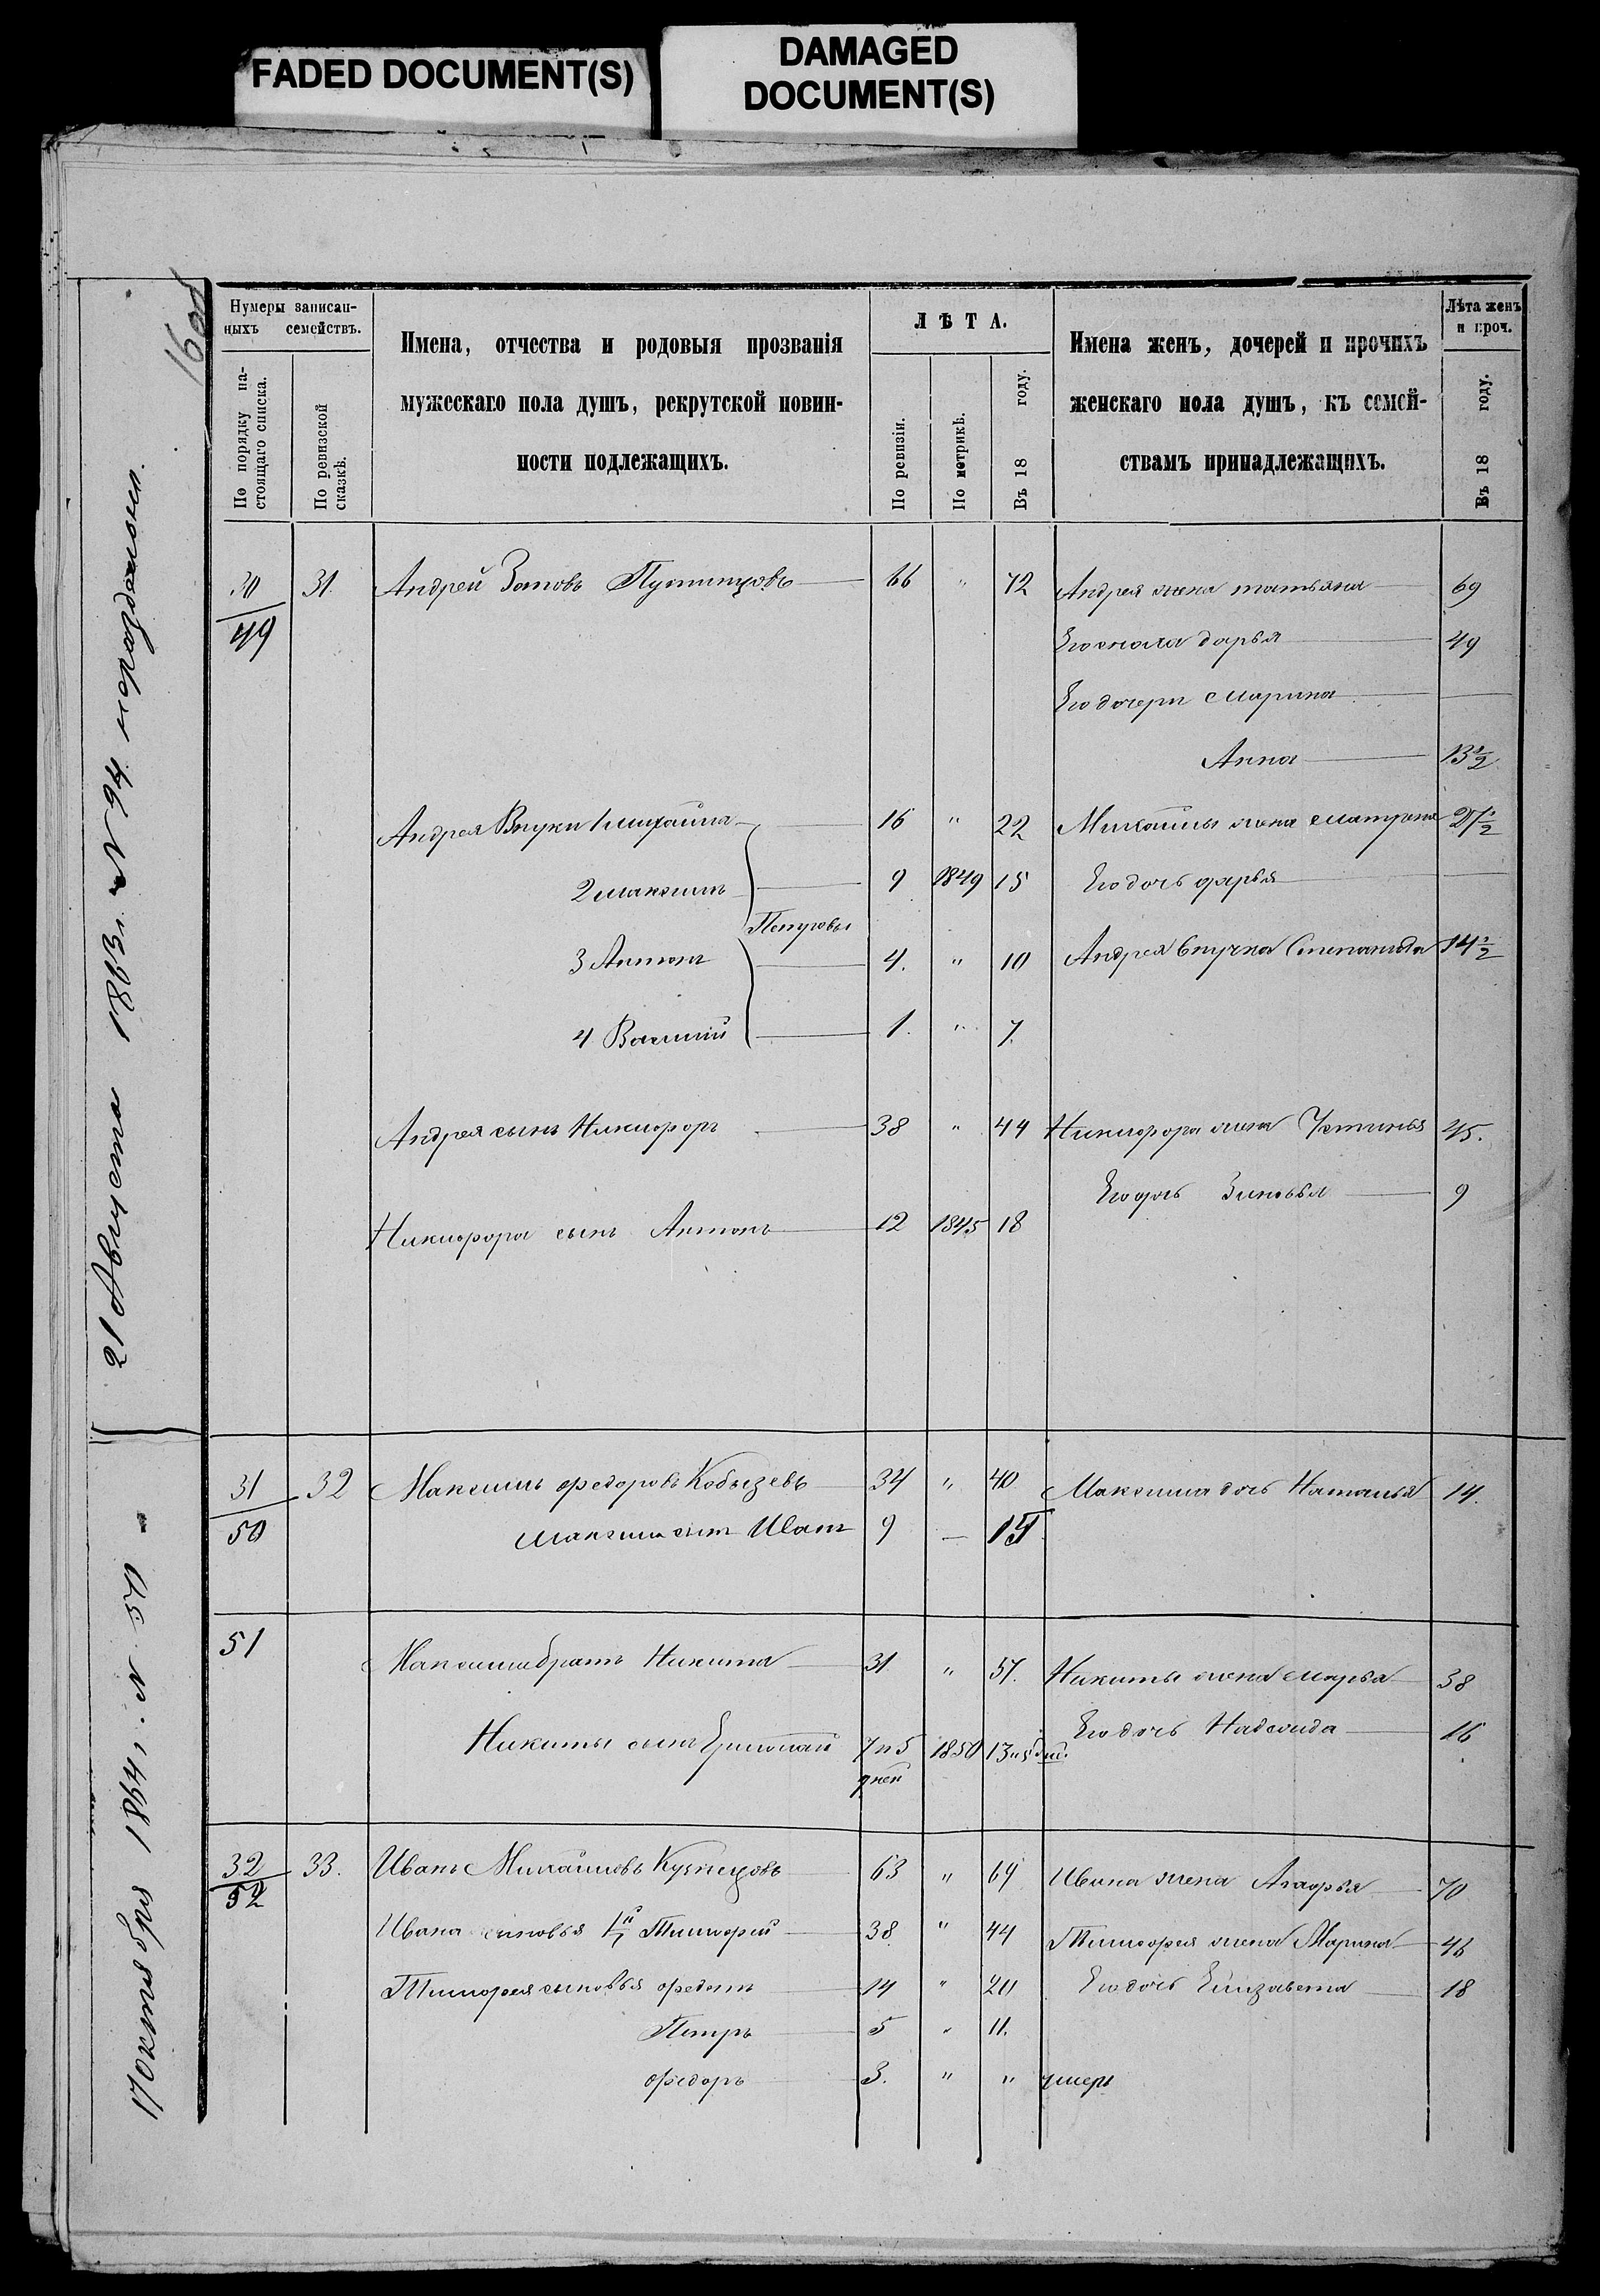 FADED DOCUMENT(S)
DAMAGED
DOCUMENT(S)
16об
Нумеры записан-
ныхъ семействъ.
По порядку на-
стоящаго списка.
По ревизской
сказкѣ.
Имена, отчества и родовыя прозванія
мужескаго пола душъ, рекрутской повин-
ности подлежащихъ.
ЛѢТА.
По ревизіи.
По метрикѣ.
Въ 18 году.
Имена женъ, дочерей и прочихъ
женскаго пола душъ, къ семей-
ствамъ принадлежащихъ.
Лѣта женъ
и проч.
Въ 18 году.
21 Августа 1863 г. N 94
17 октября 1864 г. N 50
30 31. Андрей Зотовъ 66 " 72 Андрея жена татьяна 69
49 Его сноха дарья 49
Его дочери Марина
Анна 13 1/2
Андрея Внуки 1 михайла 16 " 22 Михайлы жена матрена 27 1/2
2 максимъ 9 1849 15 Его дочь дарья
Петровы
3 Антонъ 4. " 10 Андрея внучка Степанида 14 1/2
4 Василий 1. " 7.
Андрея сынъ Никифоръ 38 " 44 Никифора жена Устинья 45.
Его дочь Зиновья 9
Никифора сынъ Антонъ 12 1845 18
31 32 Максимъ федоровъ Кобызевъ 34 " 40 Максима дочь Наталья 14.
50 Максима сынъ Иванъ 9 — 15
51 Максима братъ Никита 31 " 37. Никиты жена марья 38
Его дочь 16
Никиты сынъ Ермолай 7 и 5 1850 13 и 5 дне.
дней
32 33. Иванъ Михайловъ Кузнецовъ 63 " 69 Ивана жена Агафья 70
52
Ивана сыновья 1й Тимофей 38 " 44 Тимофея жена Марина 46
Тимофея сыновья федотъ 14 " 20 Его дочь Елизавета 18
Петръ 5 " 11.
федоръ 3. " " умеръ